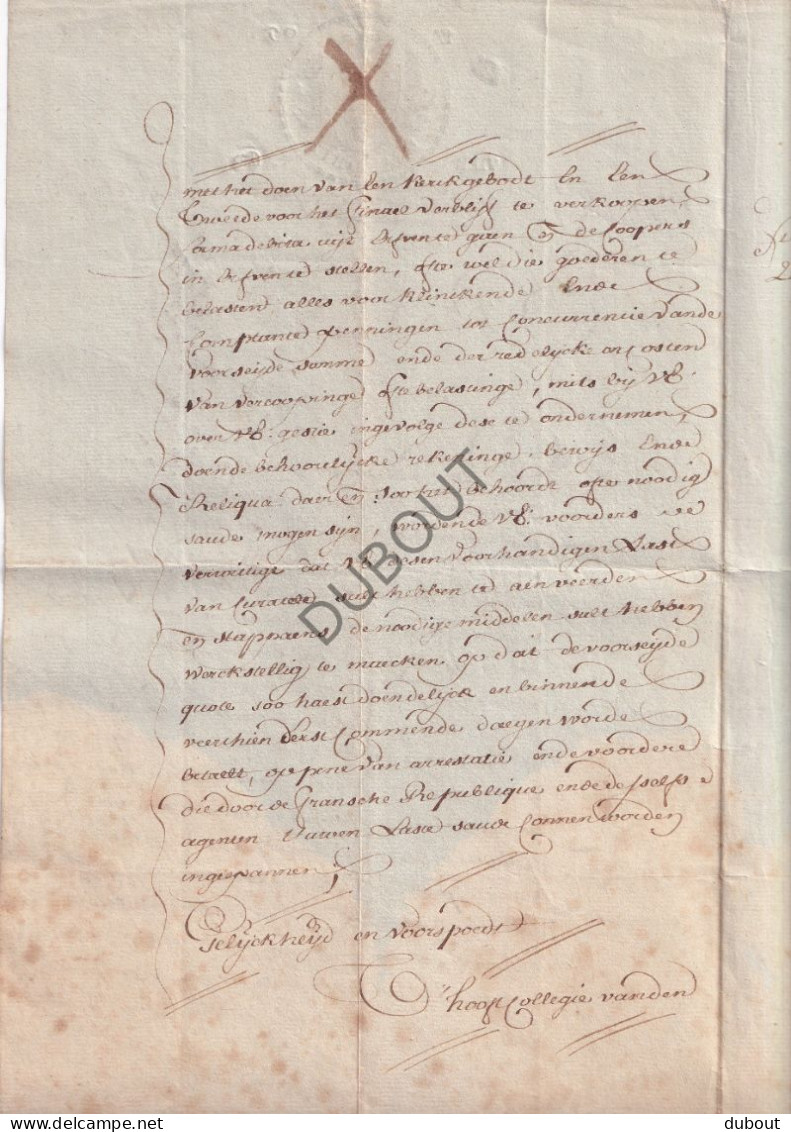 met het doen van een kerckgebodt en een
tweede voor het finael verblijf te verkoopen,
uijt erfvente gaen en de coopers
in erfvente stellen, ofte wel die goederen te
belasten alles voor klinckende ende
comptante penningen tot concurrencie vande
voorseijde somme ende der redelijcke oncosten
van vercoopinge ofte belastinge, mits bij UE:
over UE: gestie ingevolge dese te ondernemen,
doende behoorelijcke rekeninge, bewijs ende
Reliqua daer en soo het behoordt ofte noodig
saude mogen sijn, wordende UE: voorders ve
dat UE desen voorhandigen Last
van Curatele sult hebben te aenveerden
en stappaens de noodige middelen sult hebben
werckstellig te maecken op dat de voorseijde
quote soo haest doendelijck en binnen de
veerthien eerst commende daegen worde
betaelt, op pene van arrestatie ende voordere
die door de Fransche Republique ende desselfs
agenten t'uwen Laste saude connen worden
ingespannen;
Gelijckheijd en voorspoedt
T' hooft Collegie vanden
DUBOUT
© delcampe.net
dubout